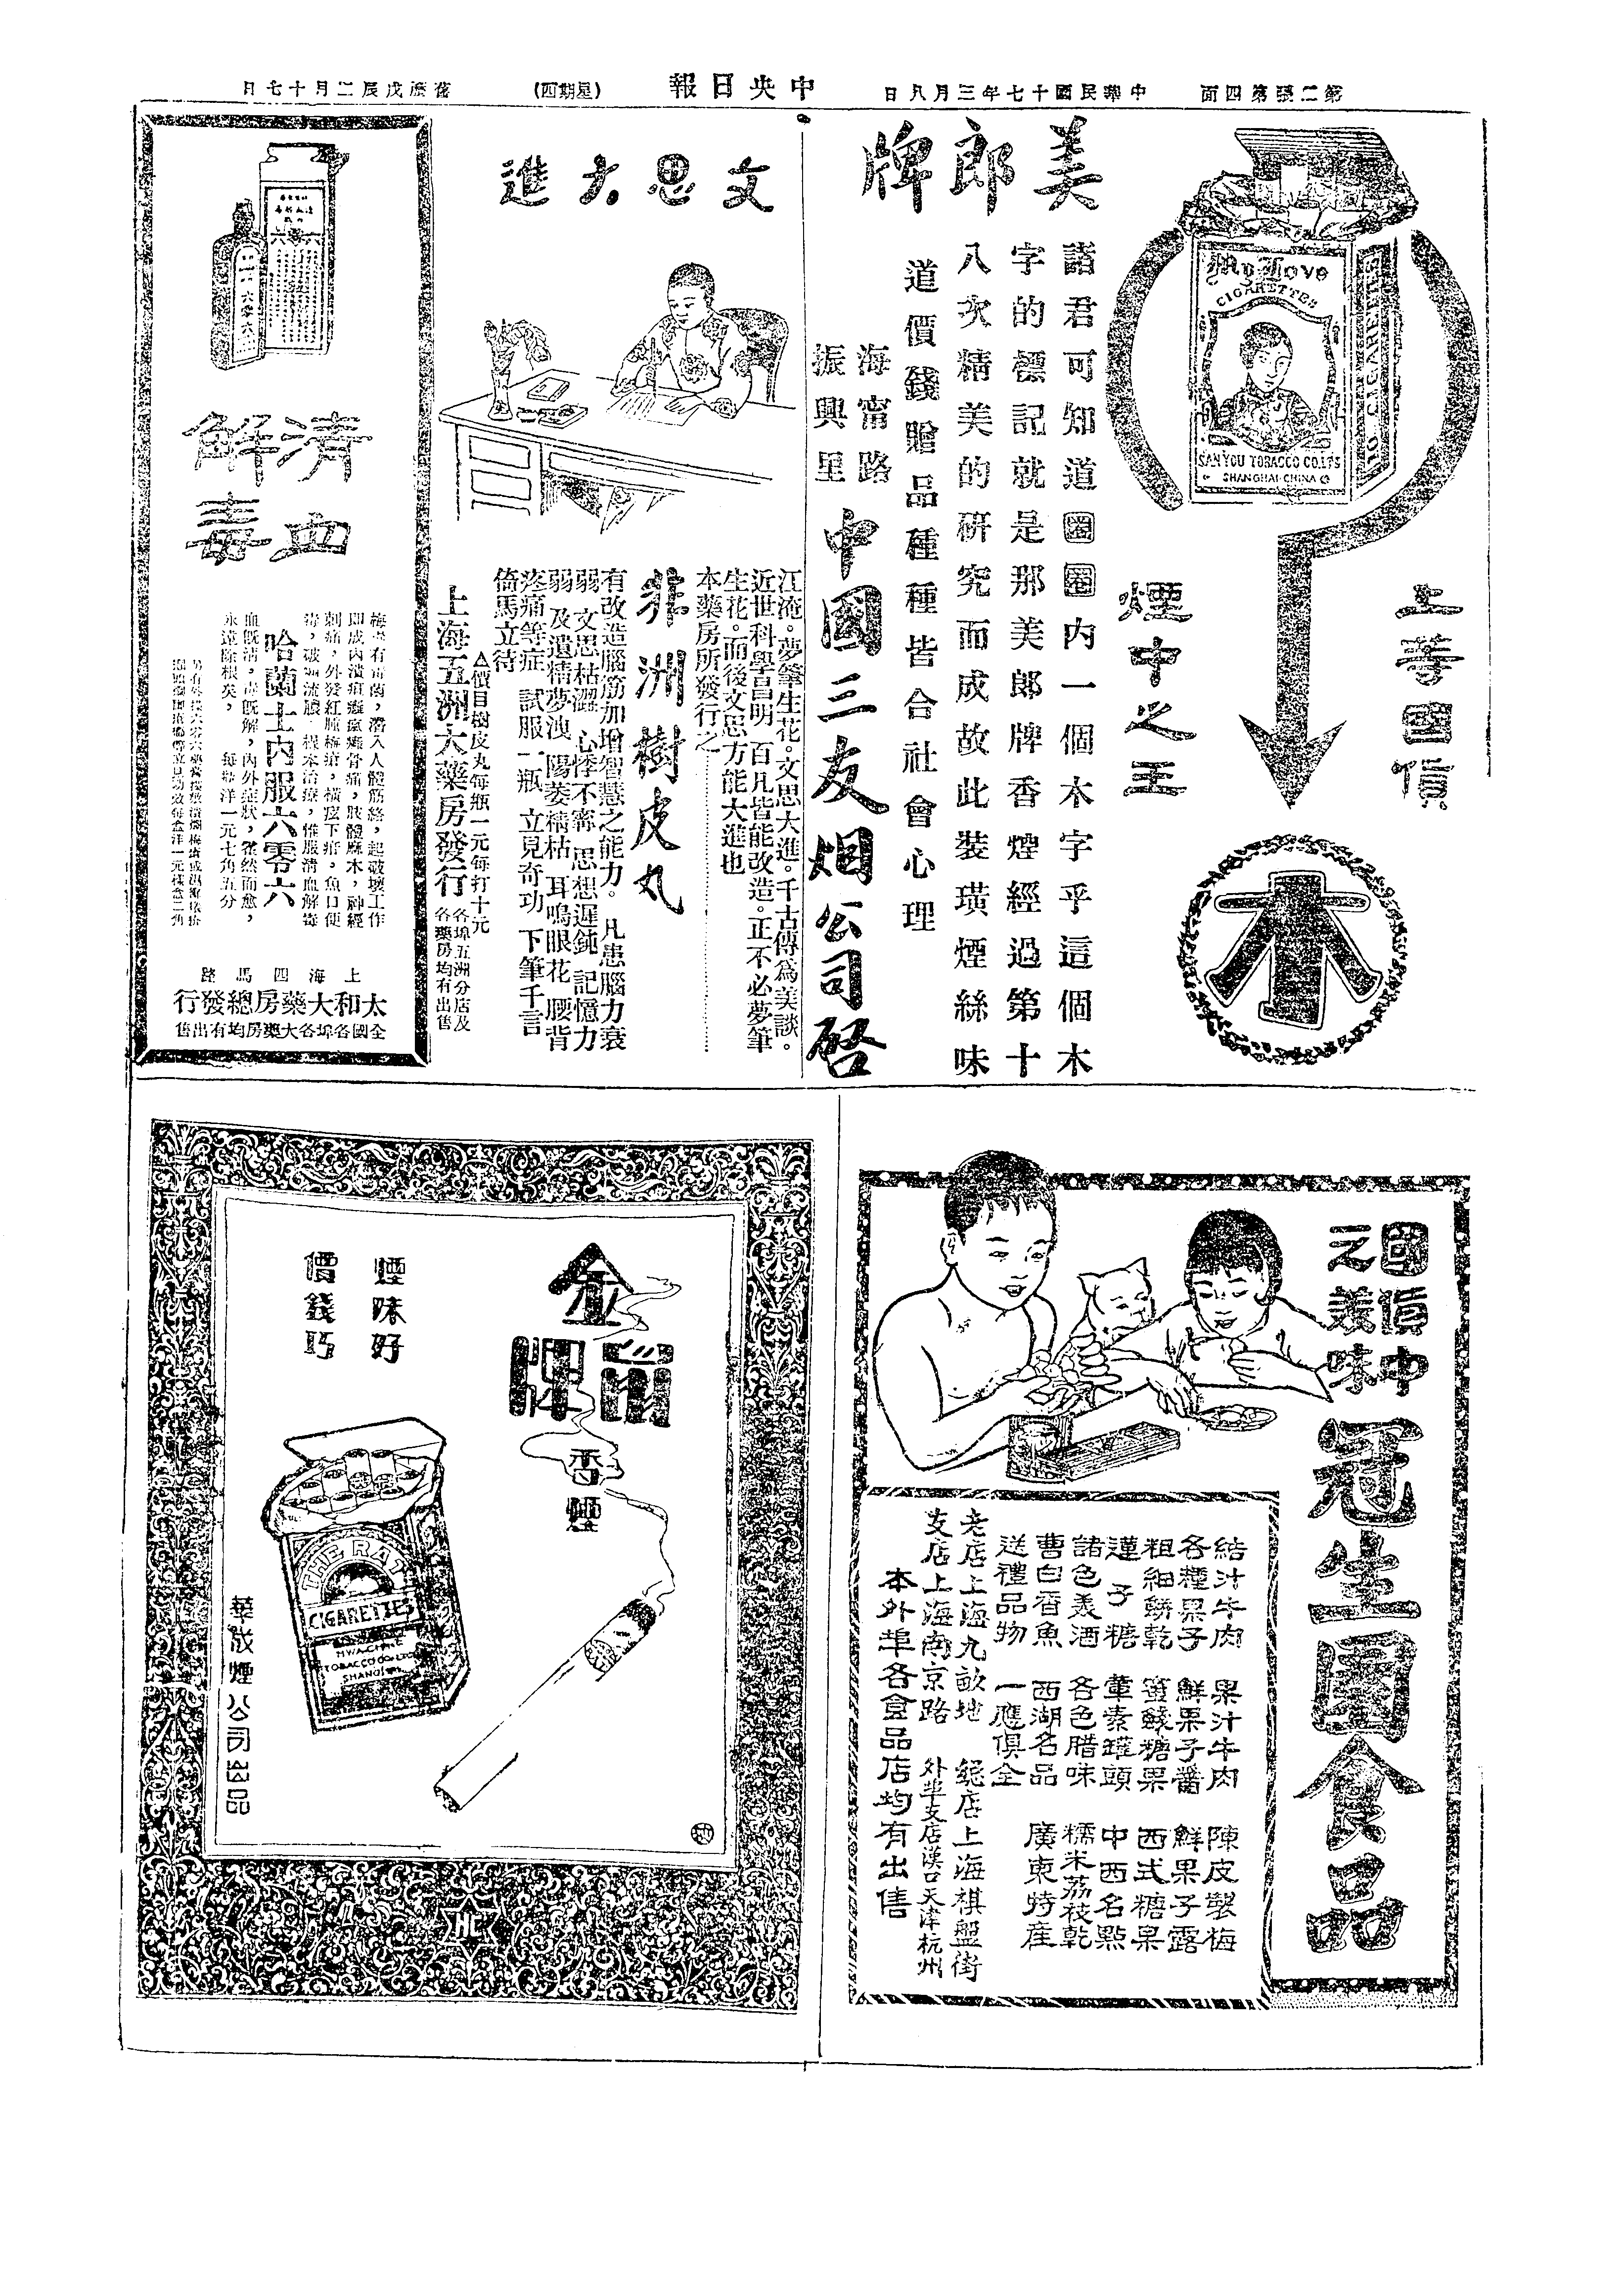 第二張第四面
中華民國十七年三月八日
中央日報
(星期四)
舊歷戊辰二月十七日
美郎牌
My Love
CIGARETTES
SAN YOU TOBACCO CO. LTS
SHANGHAI·CHINA
10 CIGARETTES
上等國貨
煙中之王
木
諸君可知道圈圈内一個木字乎這個木
字的標記就是那美郎牌香煙經過第十
八次精美的研究而成故此裝璜煙絲味
道價錢贈品種種皆合社會心理
海甯路
振興里
中國三友烟公司啓
文思大進
江淹。夢筆生花。文思大進。千古傳爲美談。
近世科學昌明 百凡皆能改造。正不必夢筆
生花。而後文思方能大進也
本藥房所發行之
非洲樹皮丸
有改造腦筋加增智慧之能力。凡患腦力衰
弱 文思枯澀 心悸不甯 思想遲鈍 記憶力
弱 及遺精夢洩 陽萎精枯 耳鳴眼花 腰背
疼痛等症 試服一瓶 立見奇功 下筆千言
倚馬立待
△價目樹皮丸每瓶一元每打十元
上海五洲大藥房發行
各埠五洲分店及
各藥房均有出售
清血
解毒
梅毒有毒菌，潛入人體筋絡，起破壞工作
即成内潰疽癡瘋癱骨痛，肢體麻木，神經
刺痛，外發紅腫梅瘡，橫痃下疳，魚口便
毒，破爛流膿，根本治療，惟服清血解毒
哈蘭士内服六零六
血旣清，毒旣解，内外症狀，霍然而愈，
永遠除根矣， 每瓶洋一元七角五分
上海四馬路
太和大藥房總發行
全國各埠各大藥房均有出售
國貨中
之美味
冠生園食品
結汁牛肉 果汁牛肉 陳皮製梅
各種果子 鮮果子醬 鮮果子露
粗細餅乾 蜜餞糖果 西式糖果
蓮子糖 葷素罐頭 中西名點
諸色美酒 各色腊味 糯米荔枝乾
曹白香魚 西湖名品 廣東特産
送禮品物 一應俱全
老店上海九畝地 總店上海棋盤街
支店上海南京路 外埠支店漢口天津杭州
本外埠各食品店均有出售
金鼠牌
香煙
煙味好
價錢巧
THE RAT
CIGARETTES
HWACHING
TOBACCO CO. LTD
SHANGHAI
華成煙公司出品